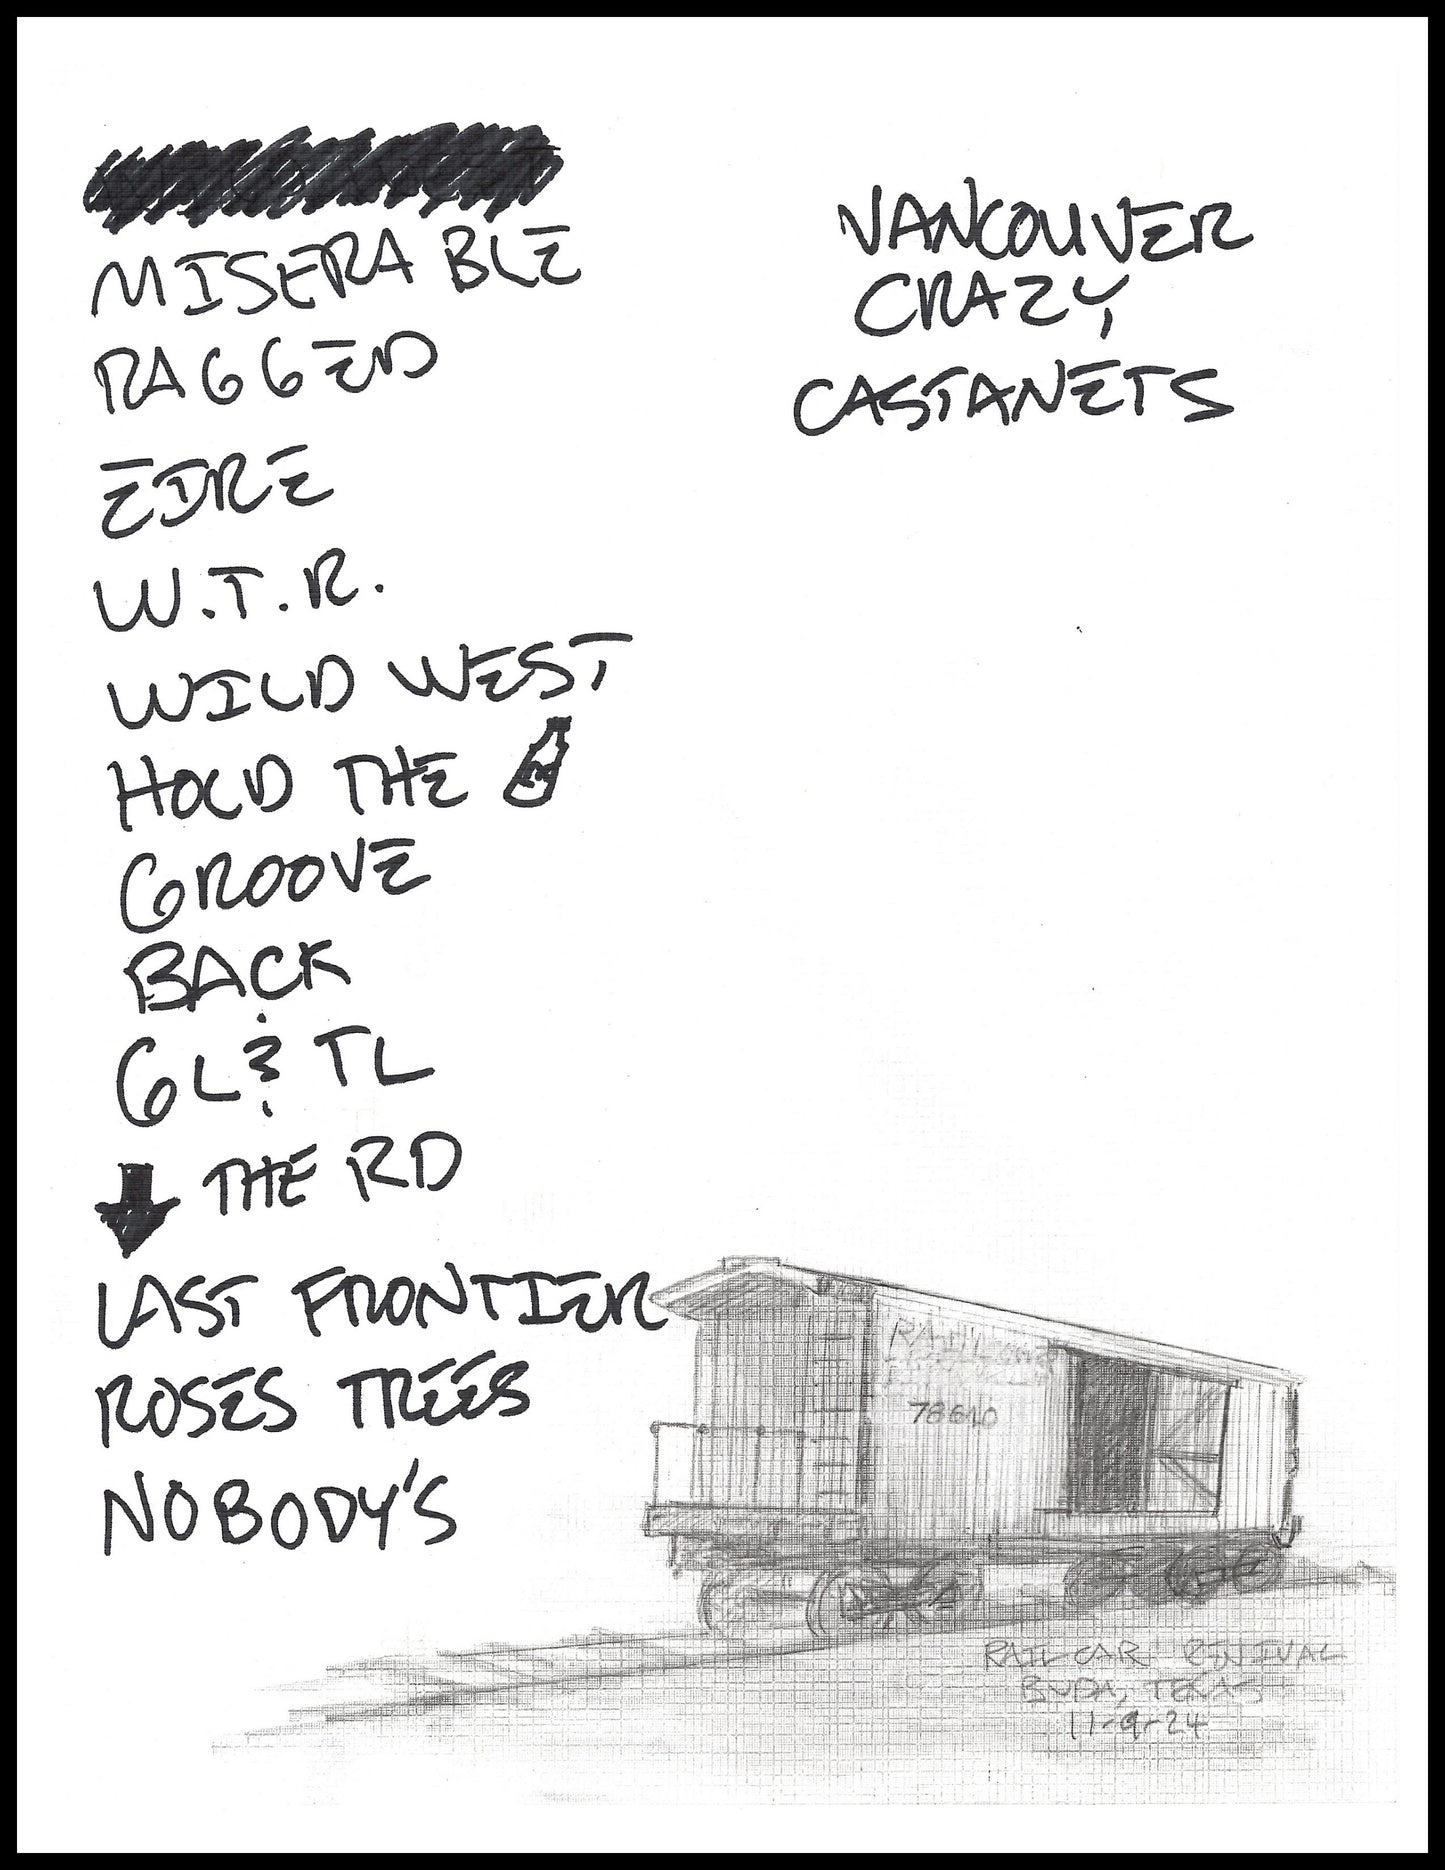 MISERABLE
RAGGED
EIRE
W.T.R.
WILD WEST
HOLD THE
GROOVE
BACK
GL & TL
THE RD
LAST FRONTIER
ROSES TREES
NOBODY'S
VANCOUVER
CRAZY
CASTANETS
78640
RAIL CAR REVIVAL
BUDA, TEXAS
11-9-24